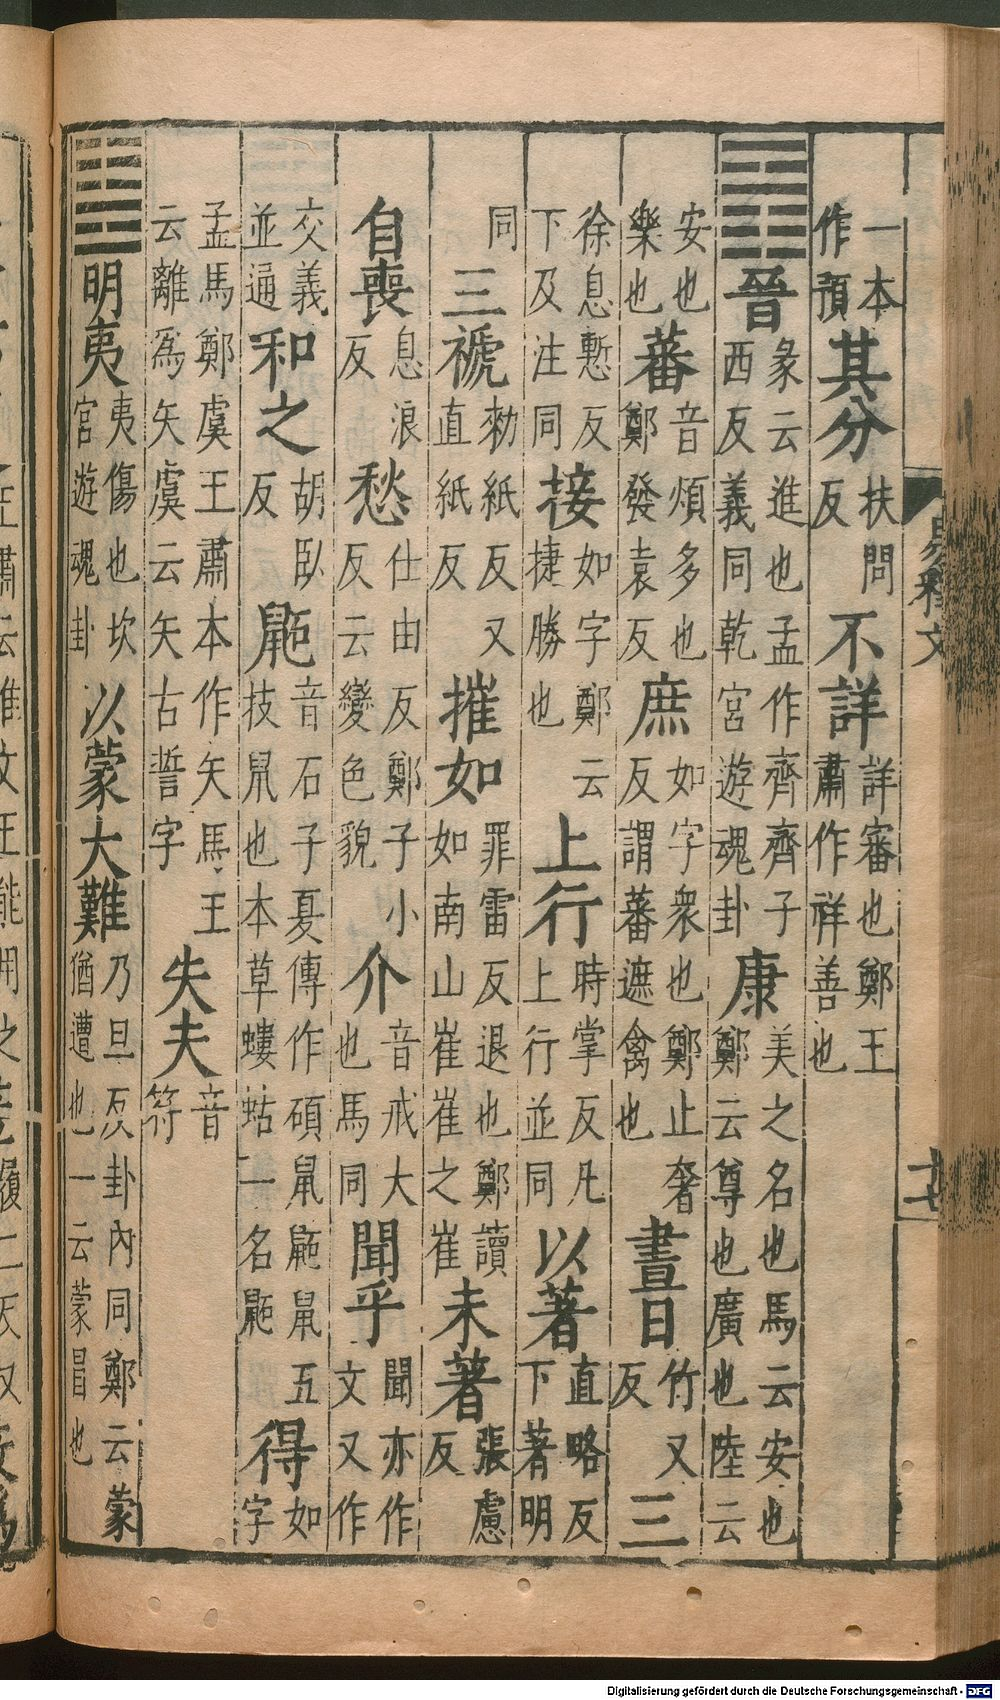 一本作預其分扶問反不詳詳審也鄭王肅作祥善也
䷢晉彖云進也孟作齊齊子西反義同乾宮遊魂卦康美之名也馬云安也鄭云尊也廣也陸云
安也樂也蕃音煩多也鄭發袁反庶如字衆也鄭止奢反謂蕃遮禽也晝日竹又反三
徐息慙反下及注同接如字鄭云捷勝也上行時掌反凡上行並同以著直略反下著明
同三褫勑紙反又直紙反摧如罪雷反退也鄭讀如南山崔崔之崔未著張慮反
自喪息浪反愁仕由反鄭子小反云變色貌介音戒大也馬同聞乎聞亦作文又作
交義並通和之胡臥反鼫音石子夏傳作碩鼠鼫鼠五技鼠也本草螻蛄一名鼫得如字
孟馬鄭虞王肅本作矢馬王云離爲矢虞云矢古誓字失夫音符
䷣明夷夷傷也坎宮遊魂卦以蒙大難乃旦反卦內同鄭云蒙猶遭也一云蒙冒也
Digitalisierung gefördert durch die Deutsche Forschungsgemeinschaft - DFG